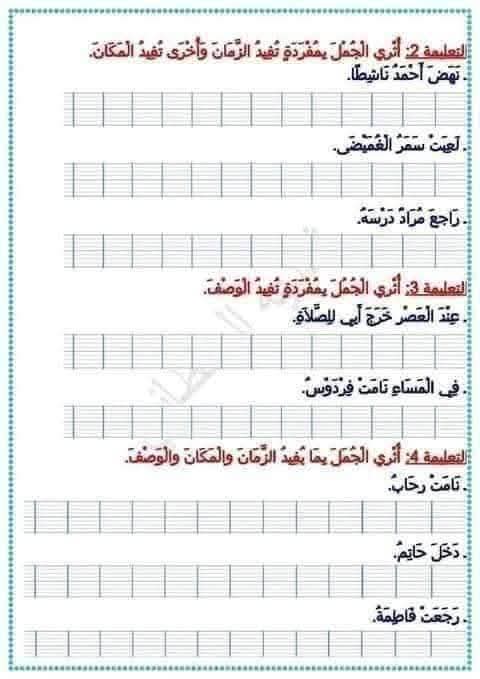 التعليمة 2: أُثْرِي الْجُمَلَ بِمُفْرَدَةٍ تُفِيدُ الزَّمَانَ وَأُخْرَى تُفِيدُ الْمَكَانَ.
. نَهَضَ أَحْمَدُ نَاشِطًا.
. لَعِبَتْ سَمَرُ الْغُمَيْضَى.
. رَاجِعَ مُرَادُ دَرْسَهُ.
التعليمة 3: أُثْرِي الْجُمَلَ بِمُفْرَدَةٍ تُفِيدُ الْوَصْفَ.
. عِنْدَ الْعَصْرِ خَرَجَ أَبِي لِلصَّلَاةِ.
. فِي الْمَسَاءِ نَامَتْ فِرْدَوْسُ.
التعليمة 4: أُثْرِي الْجُمَلَ بِمَا يُفِيدُ الزَّمَانَ والْمَكَانَ والْوَصْفَ.
. نَامَتْ رِحَابُ.
. دَخَلَ حَاتِمُ.
. رَجَعَتْ فَاطِمَةُ.